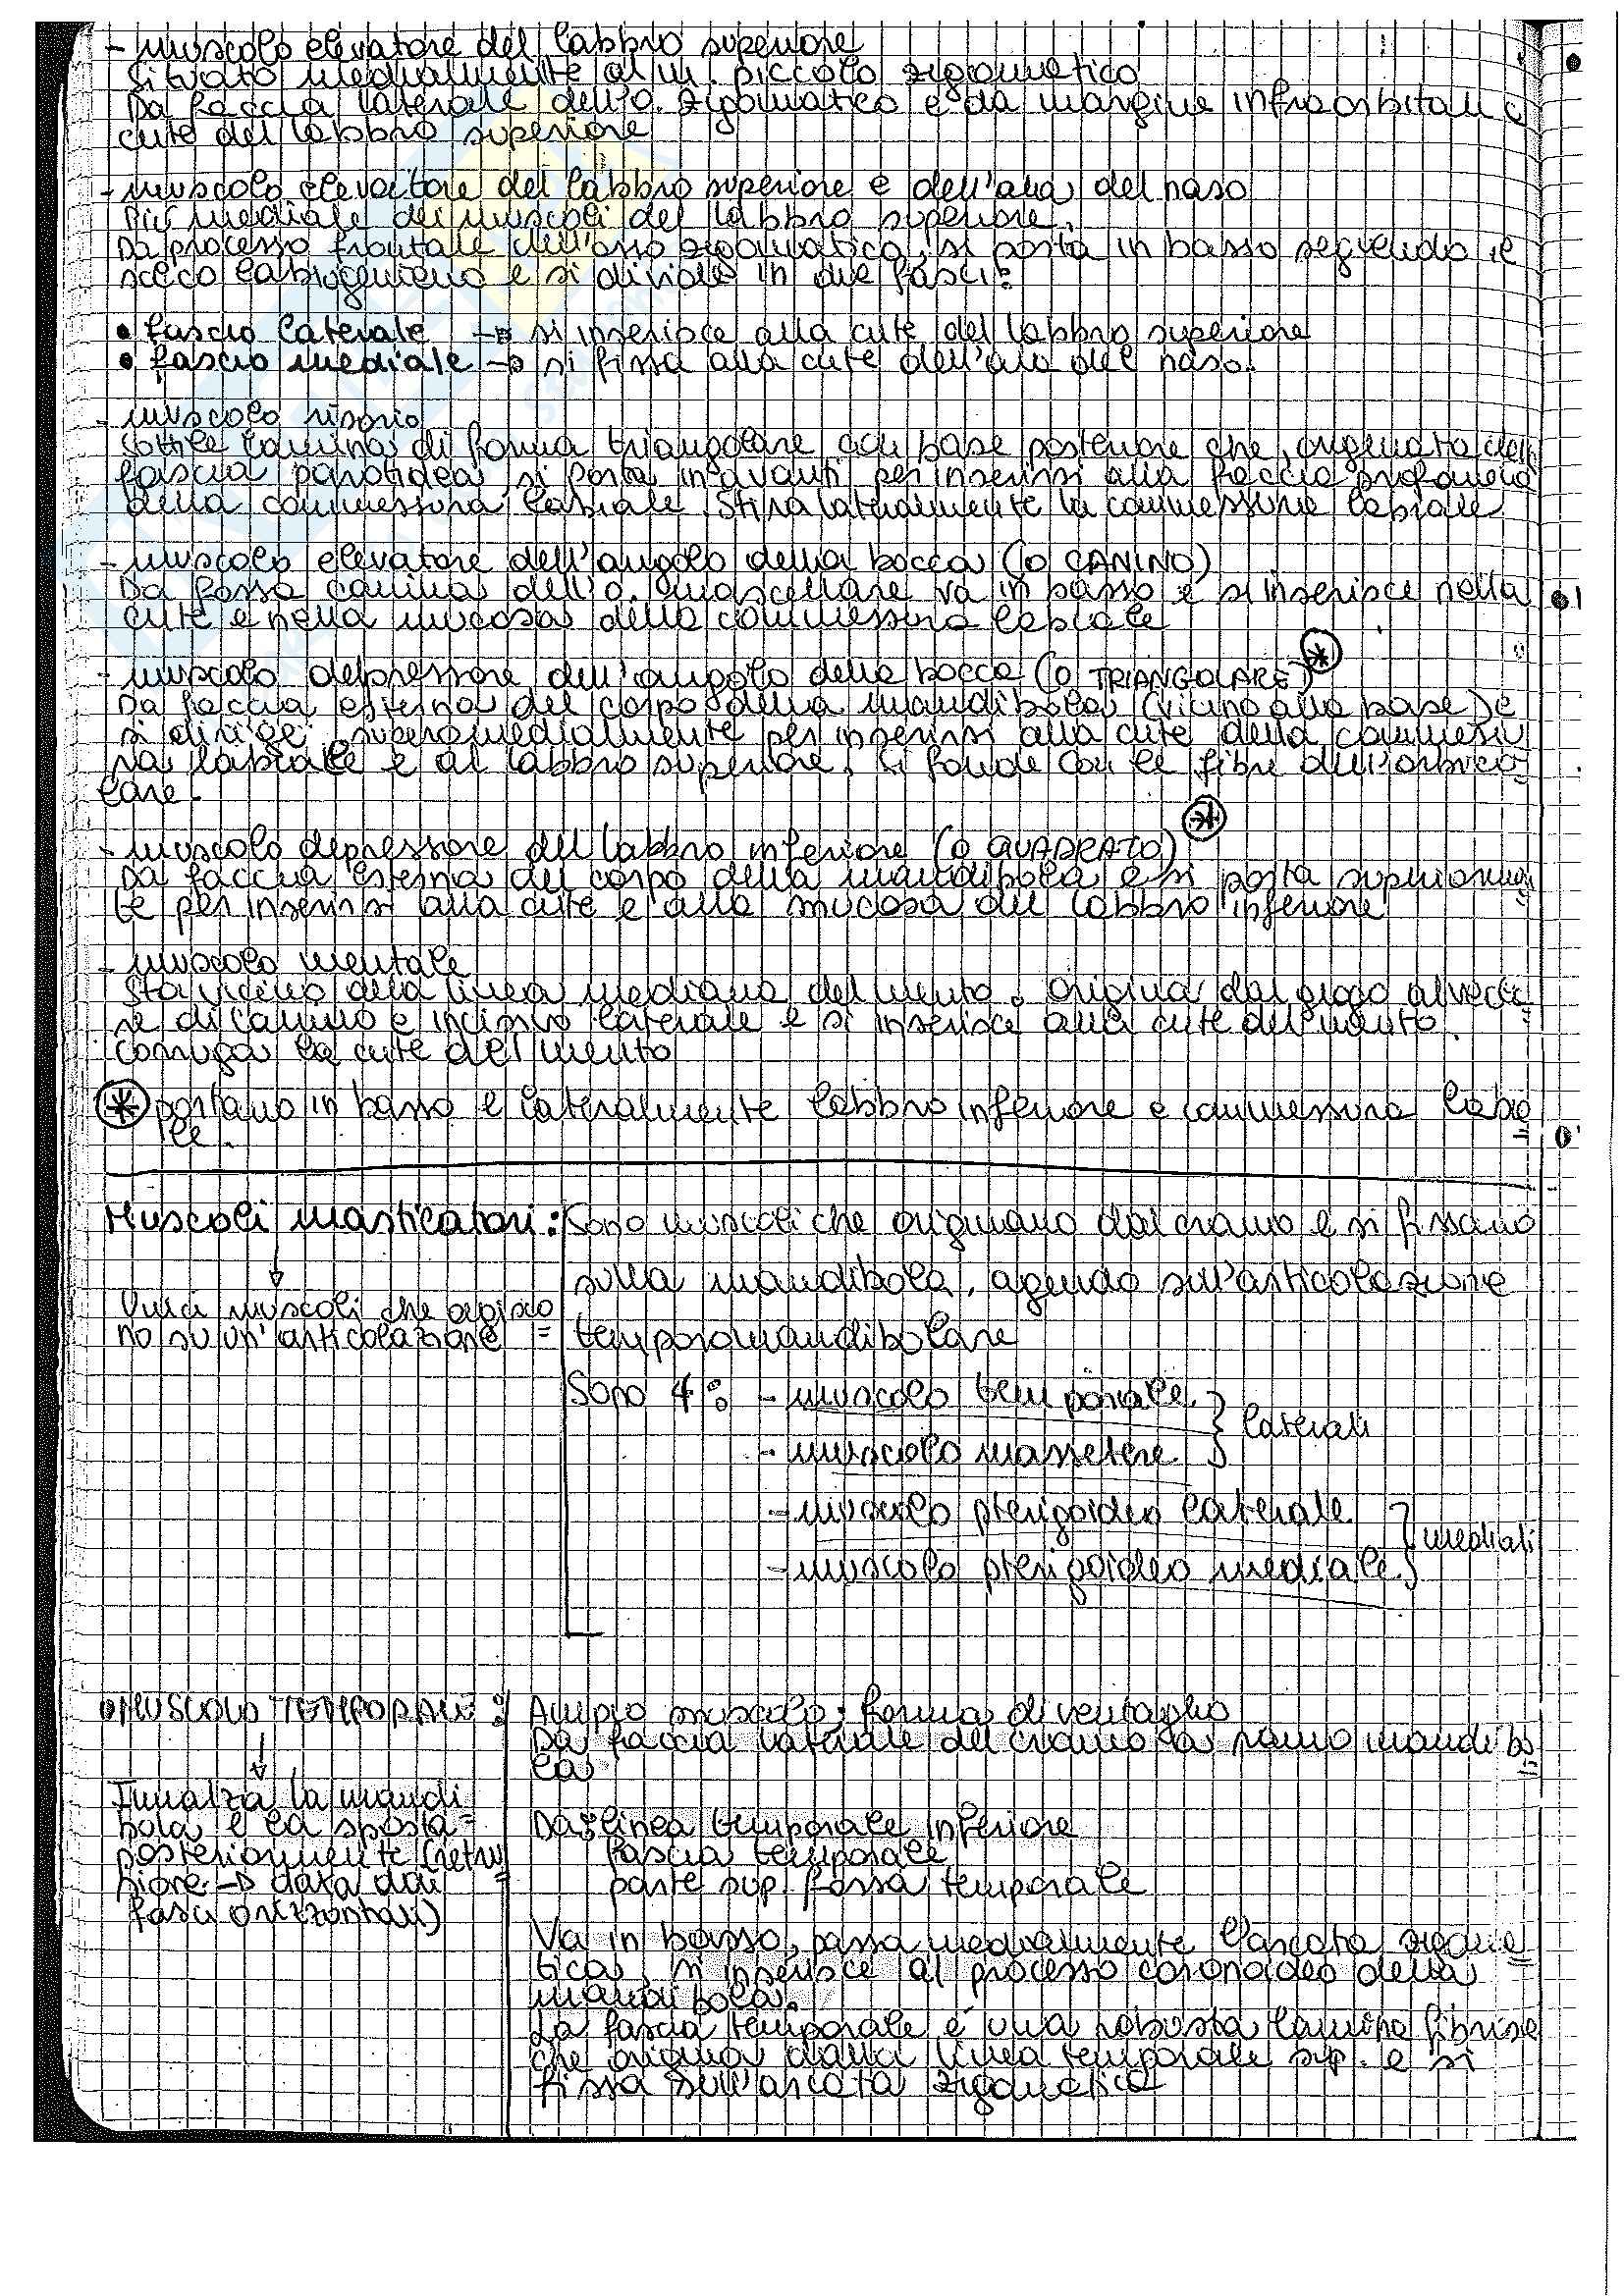 - muscolo elevatore del labbro superiore
situato medialmente al m. piccolo zigomatico
Da faccia laterale dell'o. zigomatico e da margine infraorbitale a
cute del labbro superiore
- muscolo elevatore del labbro superiore e dell'ala del naso
Più mediale dei muscoli del labbro superiore.
Da processo frontale dell'osso zigomatico, si porta in basso seguendo il
solco labiogenieno e si divide in due fasci:
• fascio laterale → si inserisce alla cute del labbro superiore
• fascio mediale → si fissa alla cute dell'ala del naso.
- muscolo risorio
sottile lamina di forma triangolare con base posteriore che, originata dalla
fascia parotidea, si porta in avanti per inserirsi alla faccia profonda
della commessura labiale. Stira lateralmente la commessura labiale
- muscolo elevatore dell'angolo della bocca (o CANINO)
Da fossa canina dell'o. mascellare va in basso e si inserisce nella
cute e nella mucosa della commessura labiale
- muscolo depressore dell'angolo della bocca (o TRIANGOLARE) *
Da faccia esterna del corpo della mandibola (vicino alla base) e
si dirige superomedialmente per inserirsi alla cute della commessu
ra labiale e al labbro superiore. Si fonde con le fibre dell'orbico
lare.
- muscolo depressore del labbro inferiore (o QUADRATO) *
Da faccia esterna del corpo della mandibola e si porta superiormen
te per inserirsi alla cute e alla mucosa del labbro inferiore
- muscolo mentale
Sta vicino alla linea mediana del mento. Origina dal giogo alveola
re di canino e incisivo laterale e si inserisce alla cute del mento.
Corruga la cute del mento
* portano in basso e lateralmente labbro inferiore e commessura labia
le.
Muscoli masticatori: Sono muscoli che originano dal cranio e si fissano
sulla mandibola, agendo sull'articolazione
temporomandibolare
↓
Unici muscoli che agisco
no su un'articolazione =
Sono 4: - muscolo temporale
- muscolo massetere } laterali
- muscolo pterigoideo laterale
- muscolo pterigoideo mediale } mediali
• MUSCOLO TEMPORALE: Ampio muscolo, forma di ventaglio
Da faccia laterale del cranio a ramo mandibo
la
↓
Innalza la mandi
bola e la sposta
posteriormente (retru
sione → data dai
fasci orizzontali)
Da: linea temporale inferiore
fascia temporale
parte sup. fossa temporale
Va in basso, passa medialmente l'arcata zigoma
tica, si inserisce al processo coronoideo della
mandibola.
La fascia temporale è una robusta lamina fibrosa
che origina dalla linea temporale sup. e si
fissa sull'arcata zigomatica